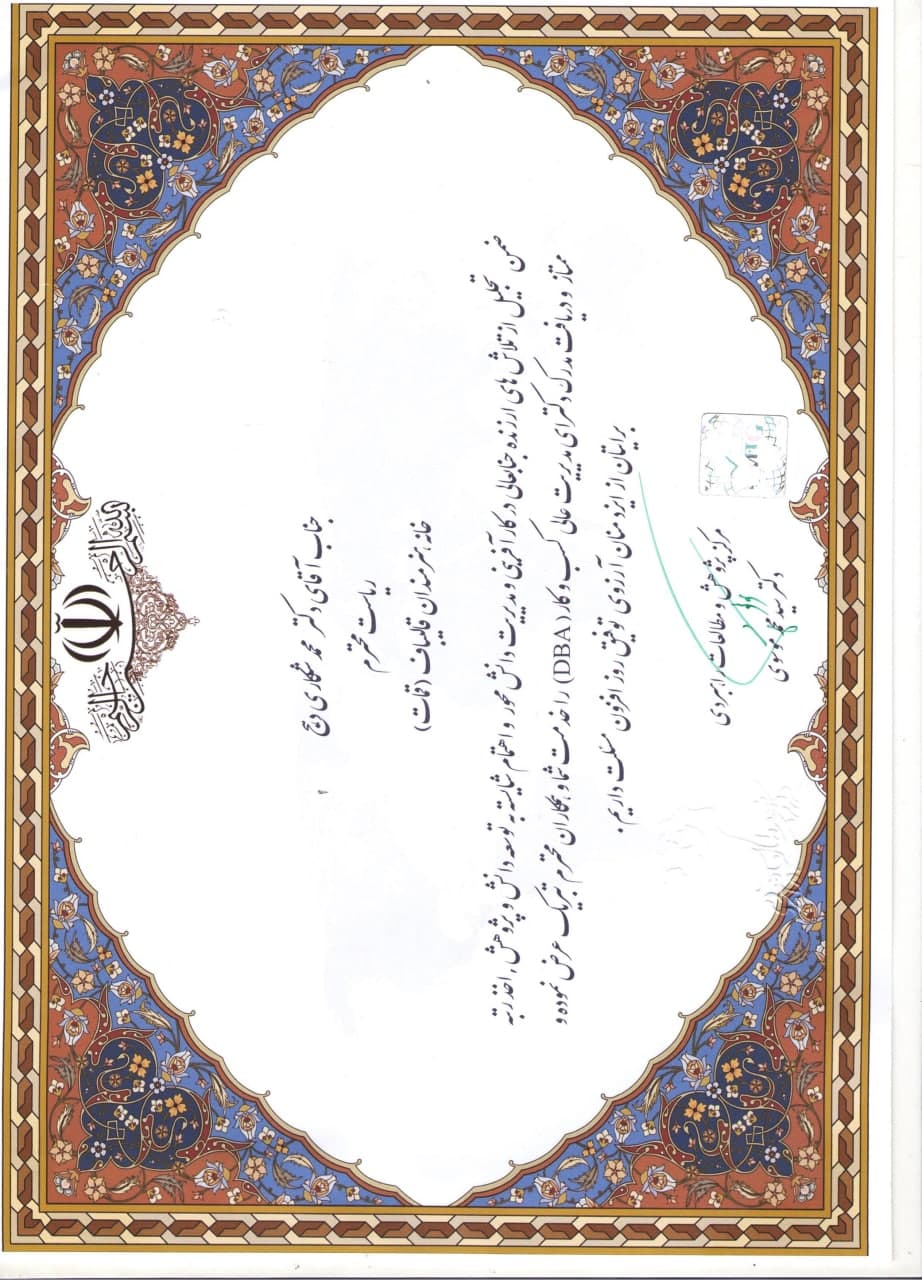 بسم الله الرحمن الرحیم
جناب آقای دکتر محمد شکاری دیج
ریاست محترم
خانه هنرمندان قالیباف (قات)
ضمن تجلیل از تلاش های ارزنده جنابعالی در کارآفرینی و مدیریت دانش محور و اهتمام شایسته به توسعه دانش و پژوهش، اخذ رتبه
ممتاز و دریافت مدرک دکترای مدیریت عالی کسب و کار (DBA) را خدمت شما و همکاران محترم تبریک عرض نموده و
برایتان از ایزد منان آرزوی توفیق روز افزون مسئلت داریم.
مرکز پژوهش و مطالعات راهبردی
دکتر سید محمد موسوی